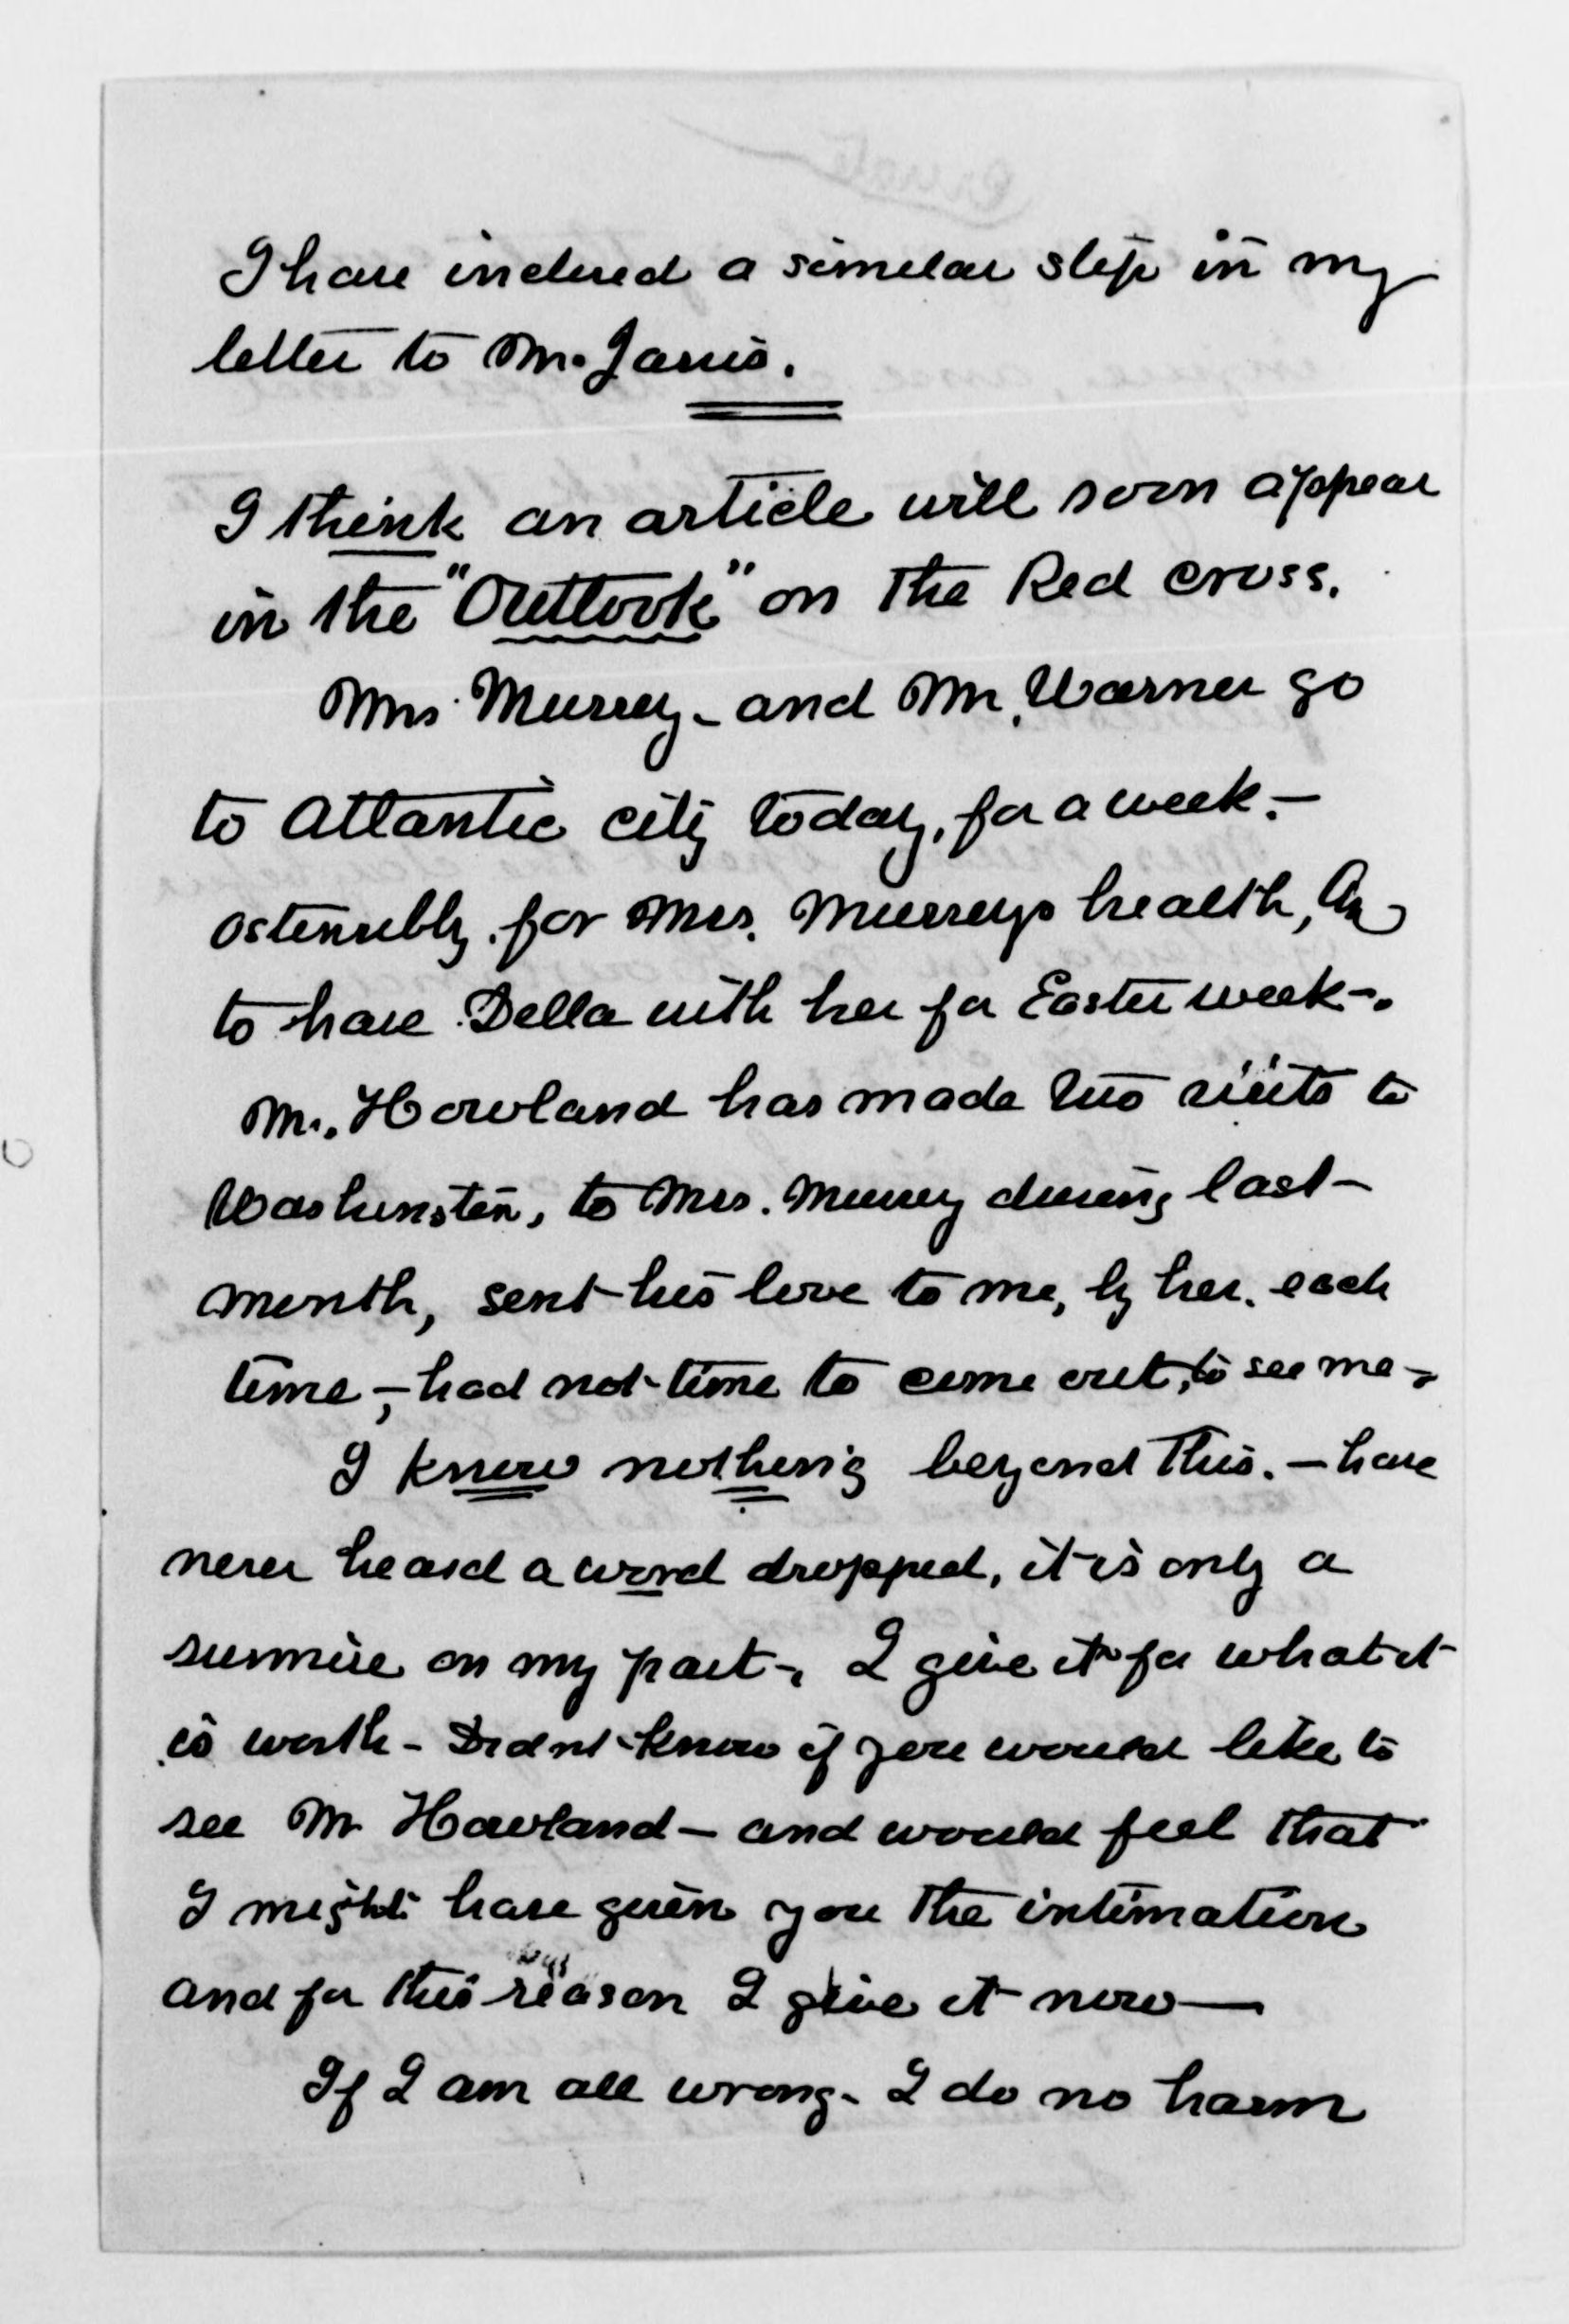 I have inclosed a similar slip in my
letter to Mr. Jarvis.
I think an article will soon appear
in the "Outlook" on The Red cross.
Mrs Murrey - and Mr. Warner go
to Atlantic city today, for a week. -
ostensibly for Mrs. Murreys health, &
to have Della with her for Easter week -.
Mr. Howland has made two visits to
Washington, to Mrs. Murrey during last
month, sent his love to me, by her. each
time -, had not time to come out, to see me -,
I know nothing beyond This. - have
never heard a word dropped, it is only a
surmise on my part -, I give it for what it
is worth - Didnt know if you would like to
see Mr Howland - and would feel that
I might have given you The intimation
and for this reason I give it now -
If I am all wrong - I do no harm